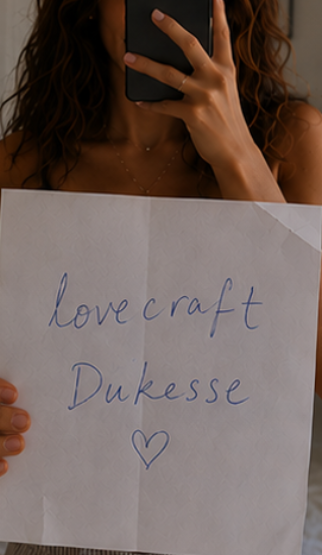 lovecraft
Dukesse
♡